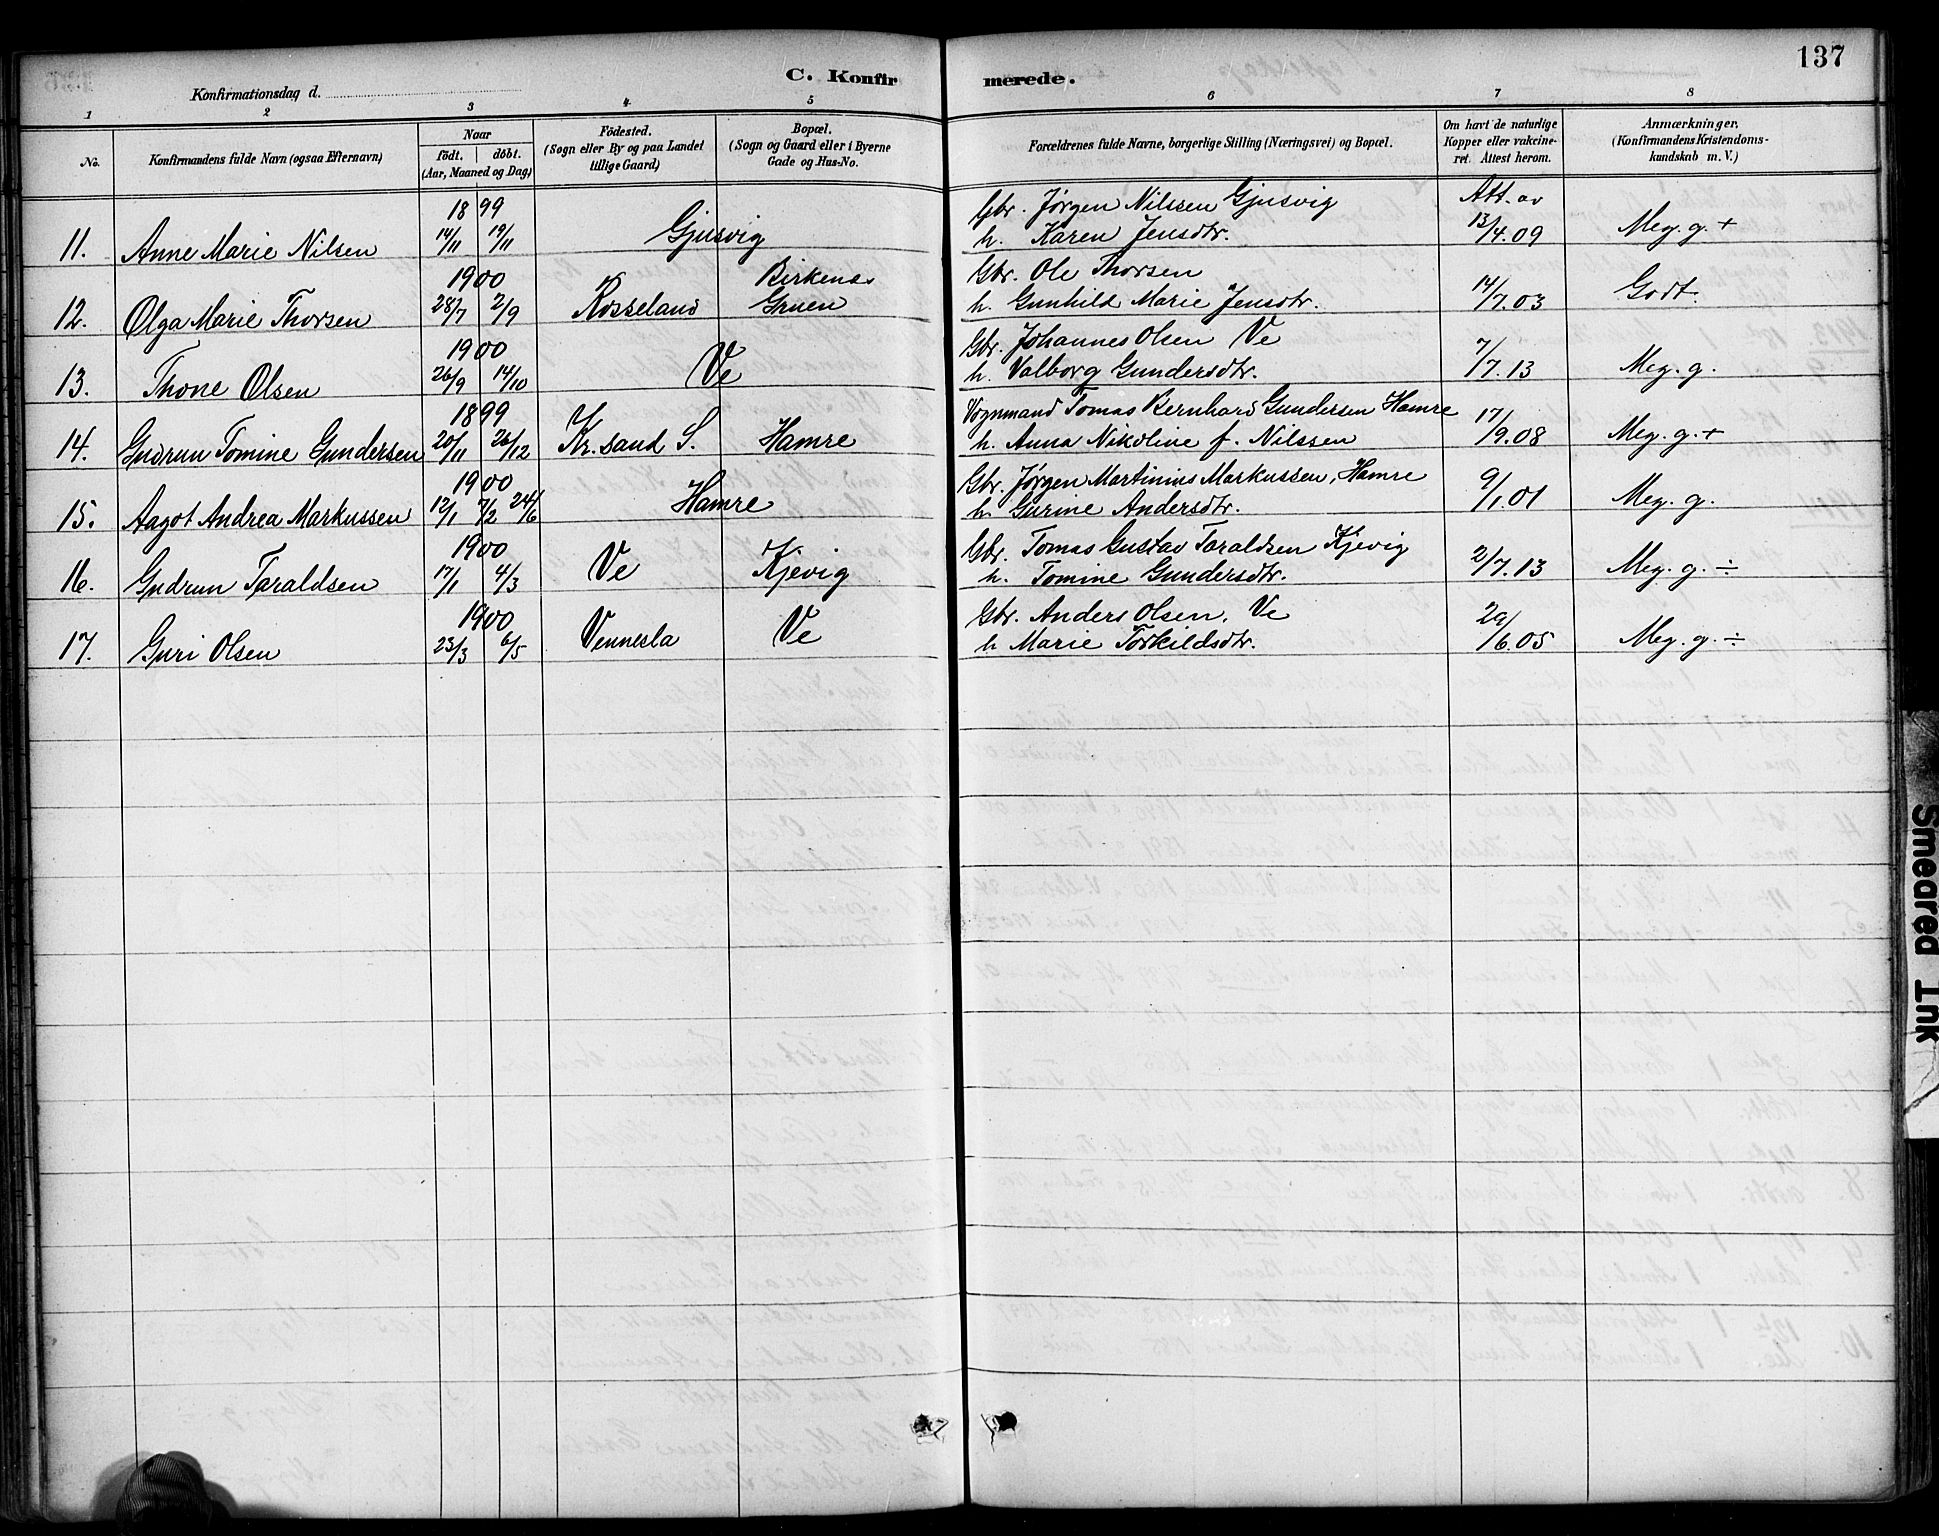 137
C. Konfirmerede.
Konfirmationsdag d.
1 2 3 4 5 6 7 8
No.
Konfirmandens fulde Navn (ogsaa Efternavn)
Naar
födt. döbt.
(Aar, Maaned og Dag)
Födested.
(Sogn eller By og paa Landet
tillige Gaard)
Bopæl.
(Sogn og Gaard eller i Byerne
Gade og Hus-No.
Forældrenes fulde Navne, borgerlige Stilling (Næringsvei) og Bopæl.
Om havt de naturlige
Kopper eller vakcine-
ret. Attest herom.
Anmærkninger.
(Konfirmandens Kristendoms-
kundskab m. V.)
1899 Gbr. Jørgen Nilssen Gjusvig Att. av
11. Anne Marie Nilsen 14/11 19/11 Gjusvig h. Karen Jensdtr. 13/4.09 Meg. g. +
1900 Birkenes Gbr. Ole Thorsen
12. Olga Marie Thorsen 28/7 2/9 Rosseland Gruen h. Gunhild Marie Jensdtr. 14/7.03 Godt.
1900 Gbr. Johannes Olsen Ve
13. Thone Olsen 26/9 14/10 Ve h. Valborg Gundersdtr. 7/7.13 Meg. g.
1899 Vognmand Tomas Bernhard Gundersen Hamre
14. Gudrun Tomine Gundersen 20/11 26/12 Kr.sand S. Hamre h. Anna Nikoline f. Nilssen 17/9.08 Meg. g. +
1900 Gbr. Jørgen Martinius Markussen, Hamre
15. Aagot Andrea Markussen 12/1 7/2 24/6 Hamre h. Gurine Andersdtr. 9/1.01 Meg. g.
1900 Gbr. Tomas Gustav Taraldsen Kjevig
16. Gudrun Taraldsen 17/1 4/3 Ve Kjevig h. Tomine Gundersdtr. 2/7.13 Meg. g. ÷
1900 Gbr. Anders Olsen. Ve
17. Guri Olsen 23/3 6/5 Vennesla Ve h Marie Torkildsdtr. 29/6.05 Meg. g. ÷
Smeared Ink